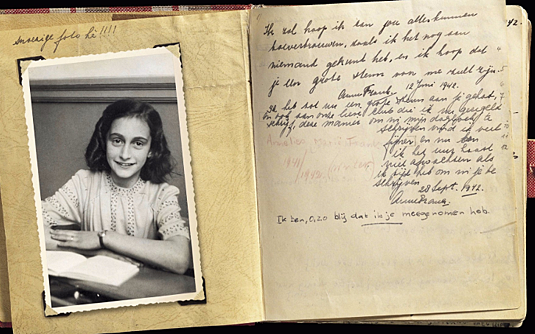 Snoezige foto hè!!!!
Ik zal hoop ik aan jou alles kunnen
toevertrouwen, zoals ik het nog aan
niemand gekund heb, en ik hoop dat
je een grote steun voor me zult zijn.
Anne Frank. 12 Juni 1942.
Ik heb tot nu een grote steun aan je gehad,
en ook aan onze lieve club die ik nu geregeld
schrijf, deze manier om in mijn dagboek te
schrijven vind ik veel
fijner en nu kan
ik het uur haast
niet afwachten als
ik tijd heb om in je te
schrijven.
28 Sept. 1942.
Anne Frank.
Ik ben, o, zo blij dat ik je meegenomen heb.